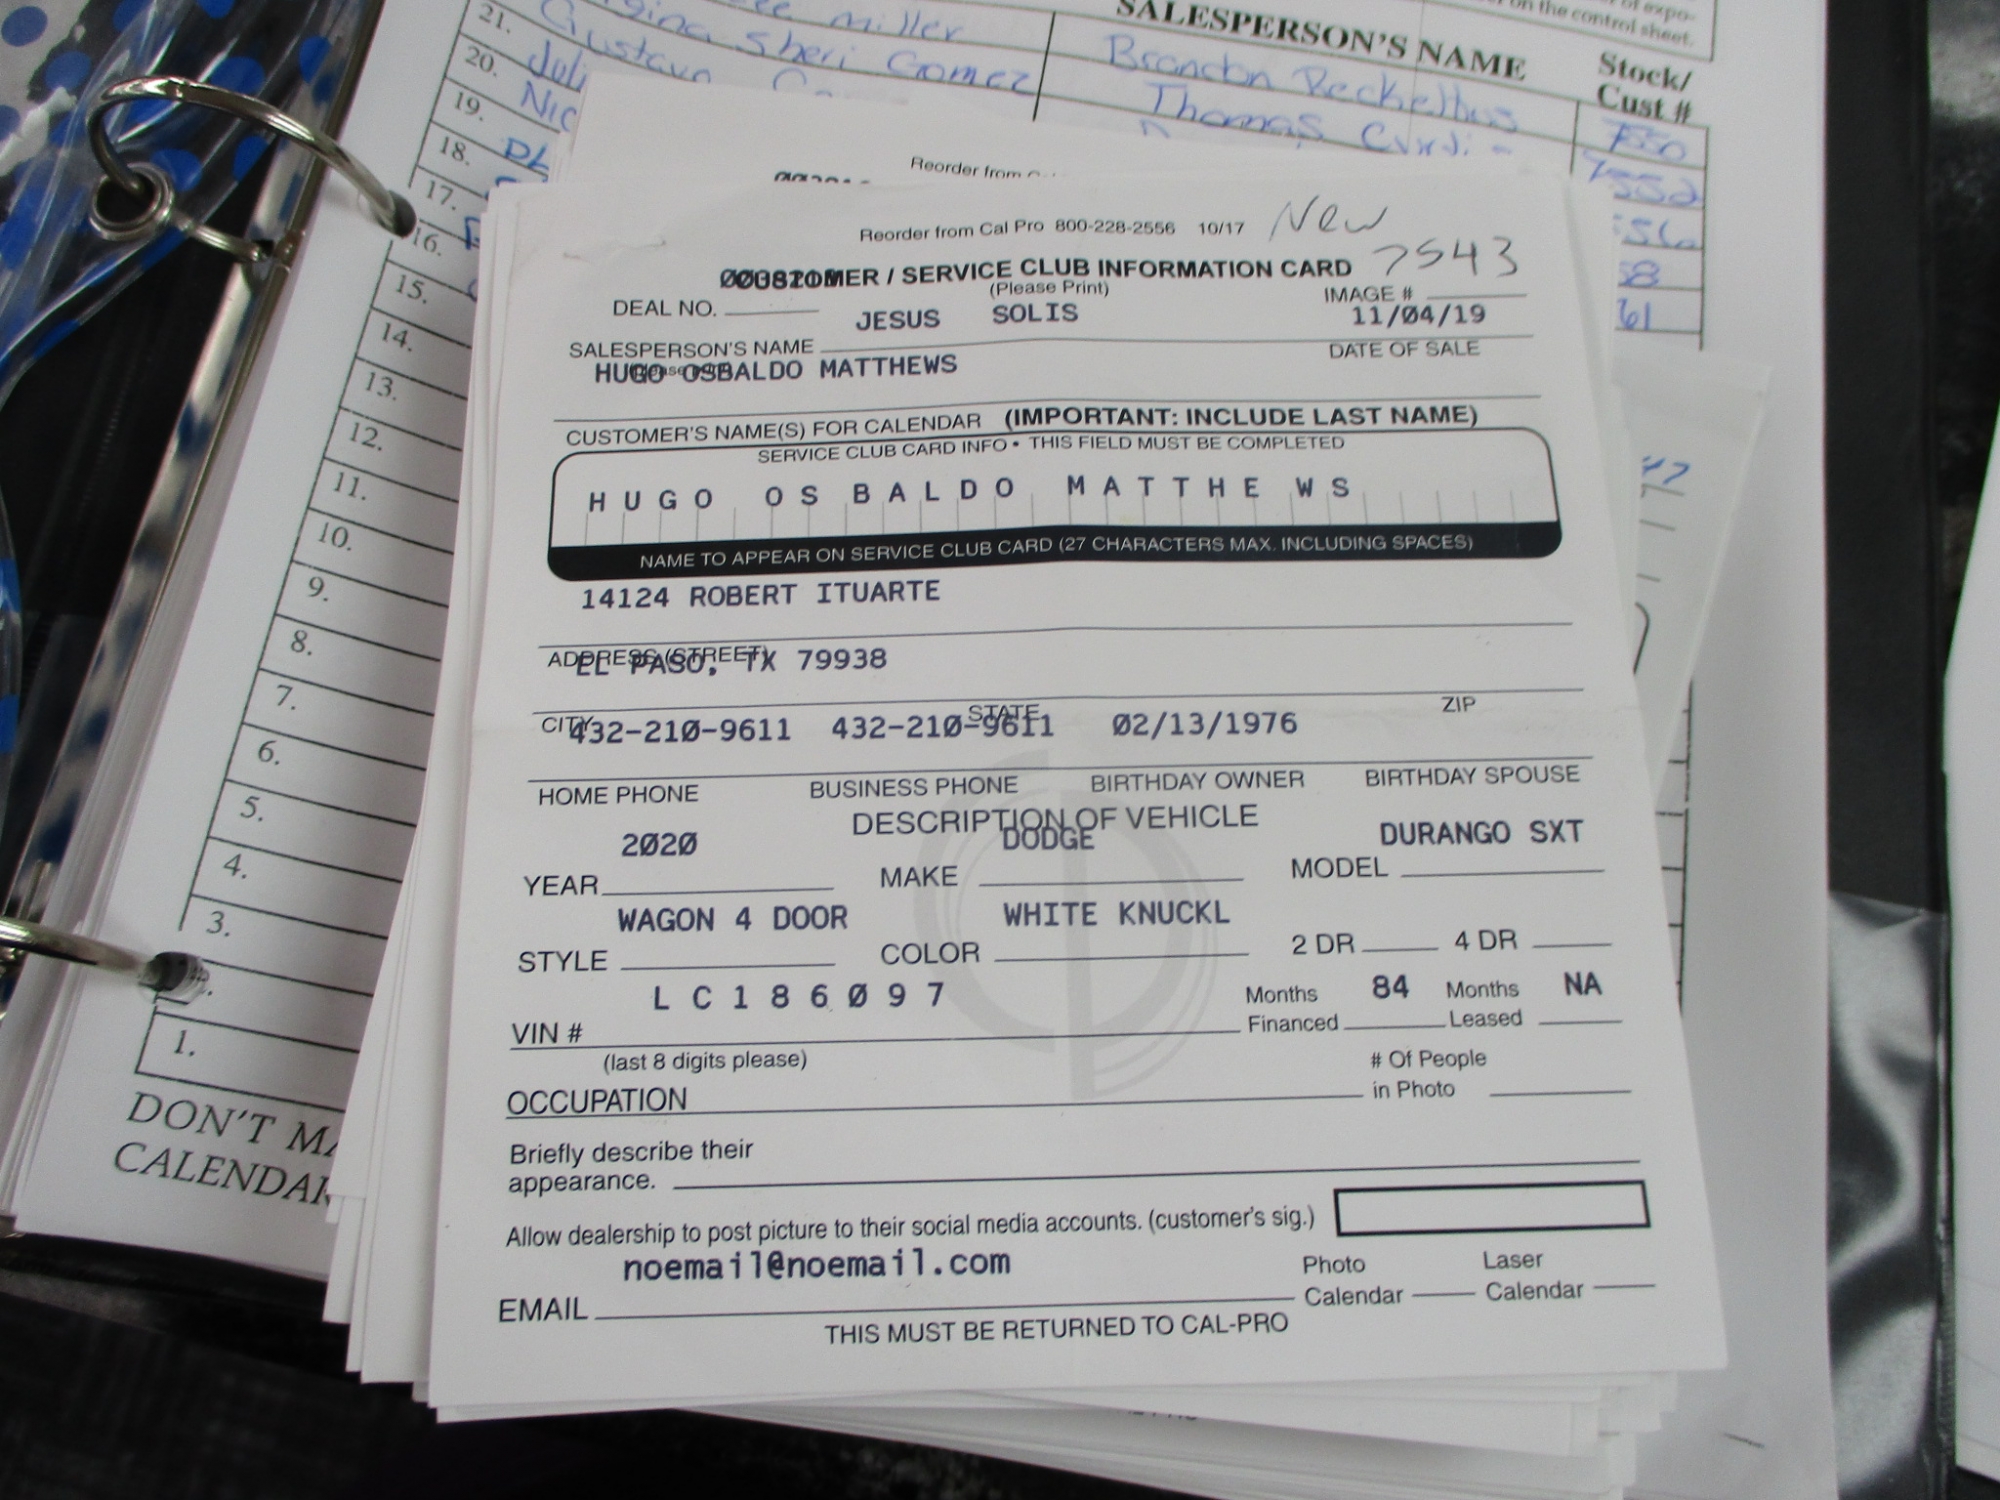 of expo-
on the control sheet.
SALESPERSON'S NAME
Stock/
Cust #
21. Miller
20. Sheri Gomez Brandon 7550
19. Gustavo Thomas 7552
18.
17.
16.
15.
14.
13.
12.
11.
10.
9.
8.
7.
6.
5.
4.
3.
1.
DON'T MA
CALENDAR
Reorder from
Reorder from Cal Pro 800-228-2556 10/17 New
CUSTOMER / SERVICE CLUB INFORMATION CARD 7543
(Please Print)
DEAL NO. IMAGE #
JESUS SOLIS 11/04/19
SALESPERSON'S NAME DATE OF SALE
HUGO OSBALDO MATTHEWS
CUSTOMER'S NAME(S) FOR CALENDAR (IMPORTANT: INCLUDE LAST NAME)
SERVICE CLUB CARD INFO • THIS FIELD MUST BE COMPLETED
HUGO OSBALDO MATTHEWS
NAME TO APPEAR ON SERVICE CLUB CARD (27 CHARACTERS MAX. INCLUDING SPACES)
14124 ROBERT ITUARTE
ADDRESS (STREET)
EL PASO, TX 79938
CITY STATE ZIP
432-210-9611 432-210-9611 02/13/1976
HOME PHONE BUSINESS PHONE BIRTHDAY OWNER BIRTHDAY SPOUSE
DESCRIPTION OF VEHICLE
2020 DODGE DURANGO SXT
YEAR MAKE MODEL
WAGON 4 DOOR WHITE KNUCKL
STYLE COLOR 2 DR 4 DR
LC186097 Months 84 Months NA
VIN # Financed Leased
(last 8 digits please) # Of People
OCCUPATION in Photo
Briefly describe their
appearance.
Allow dealership to post picture to their social media accounts. (customer's sig.)
noemail@noemail.com Photo Laser
EMAIL Calendar Calendar
THIS MUST BE RETURNED TO CAL-PRO